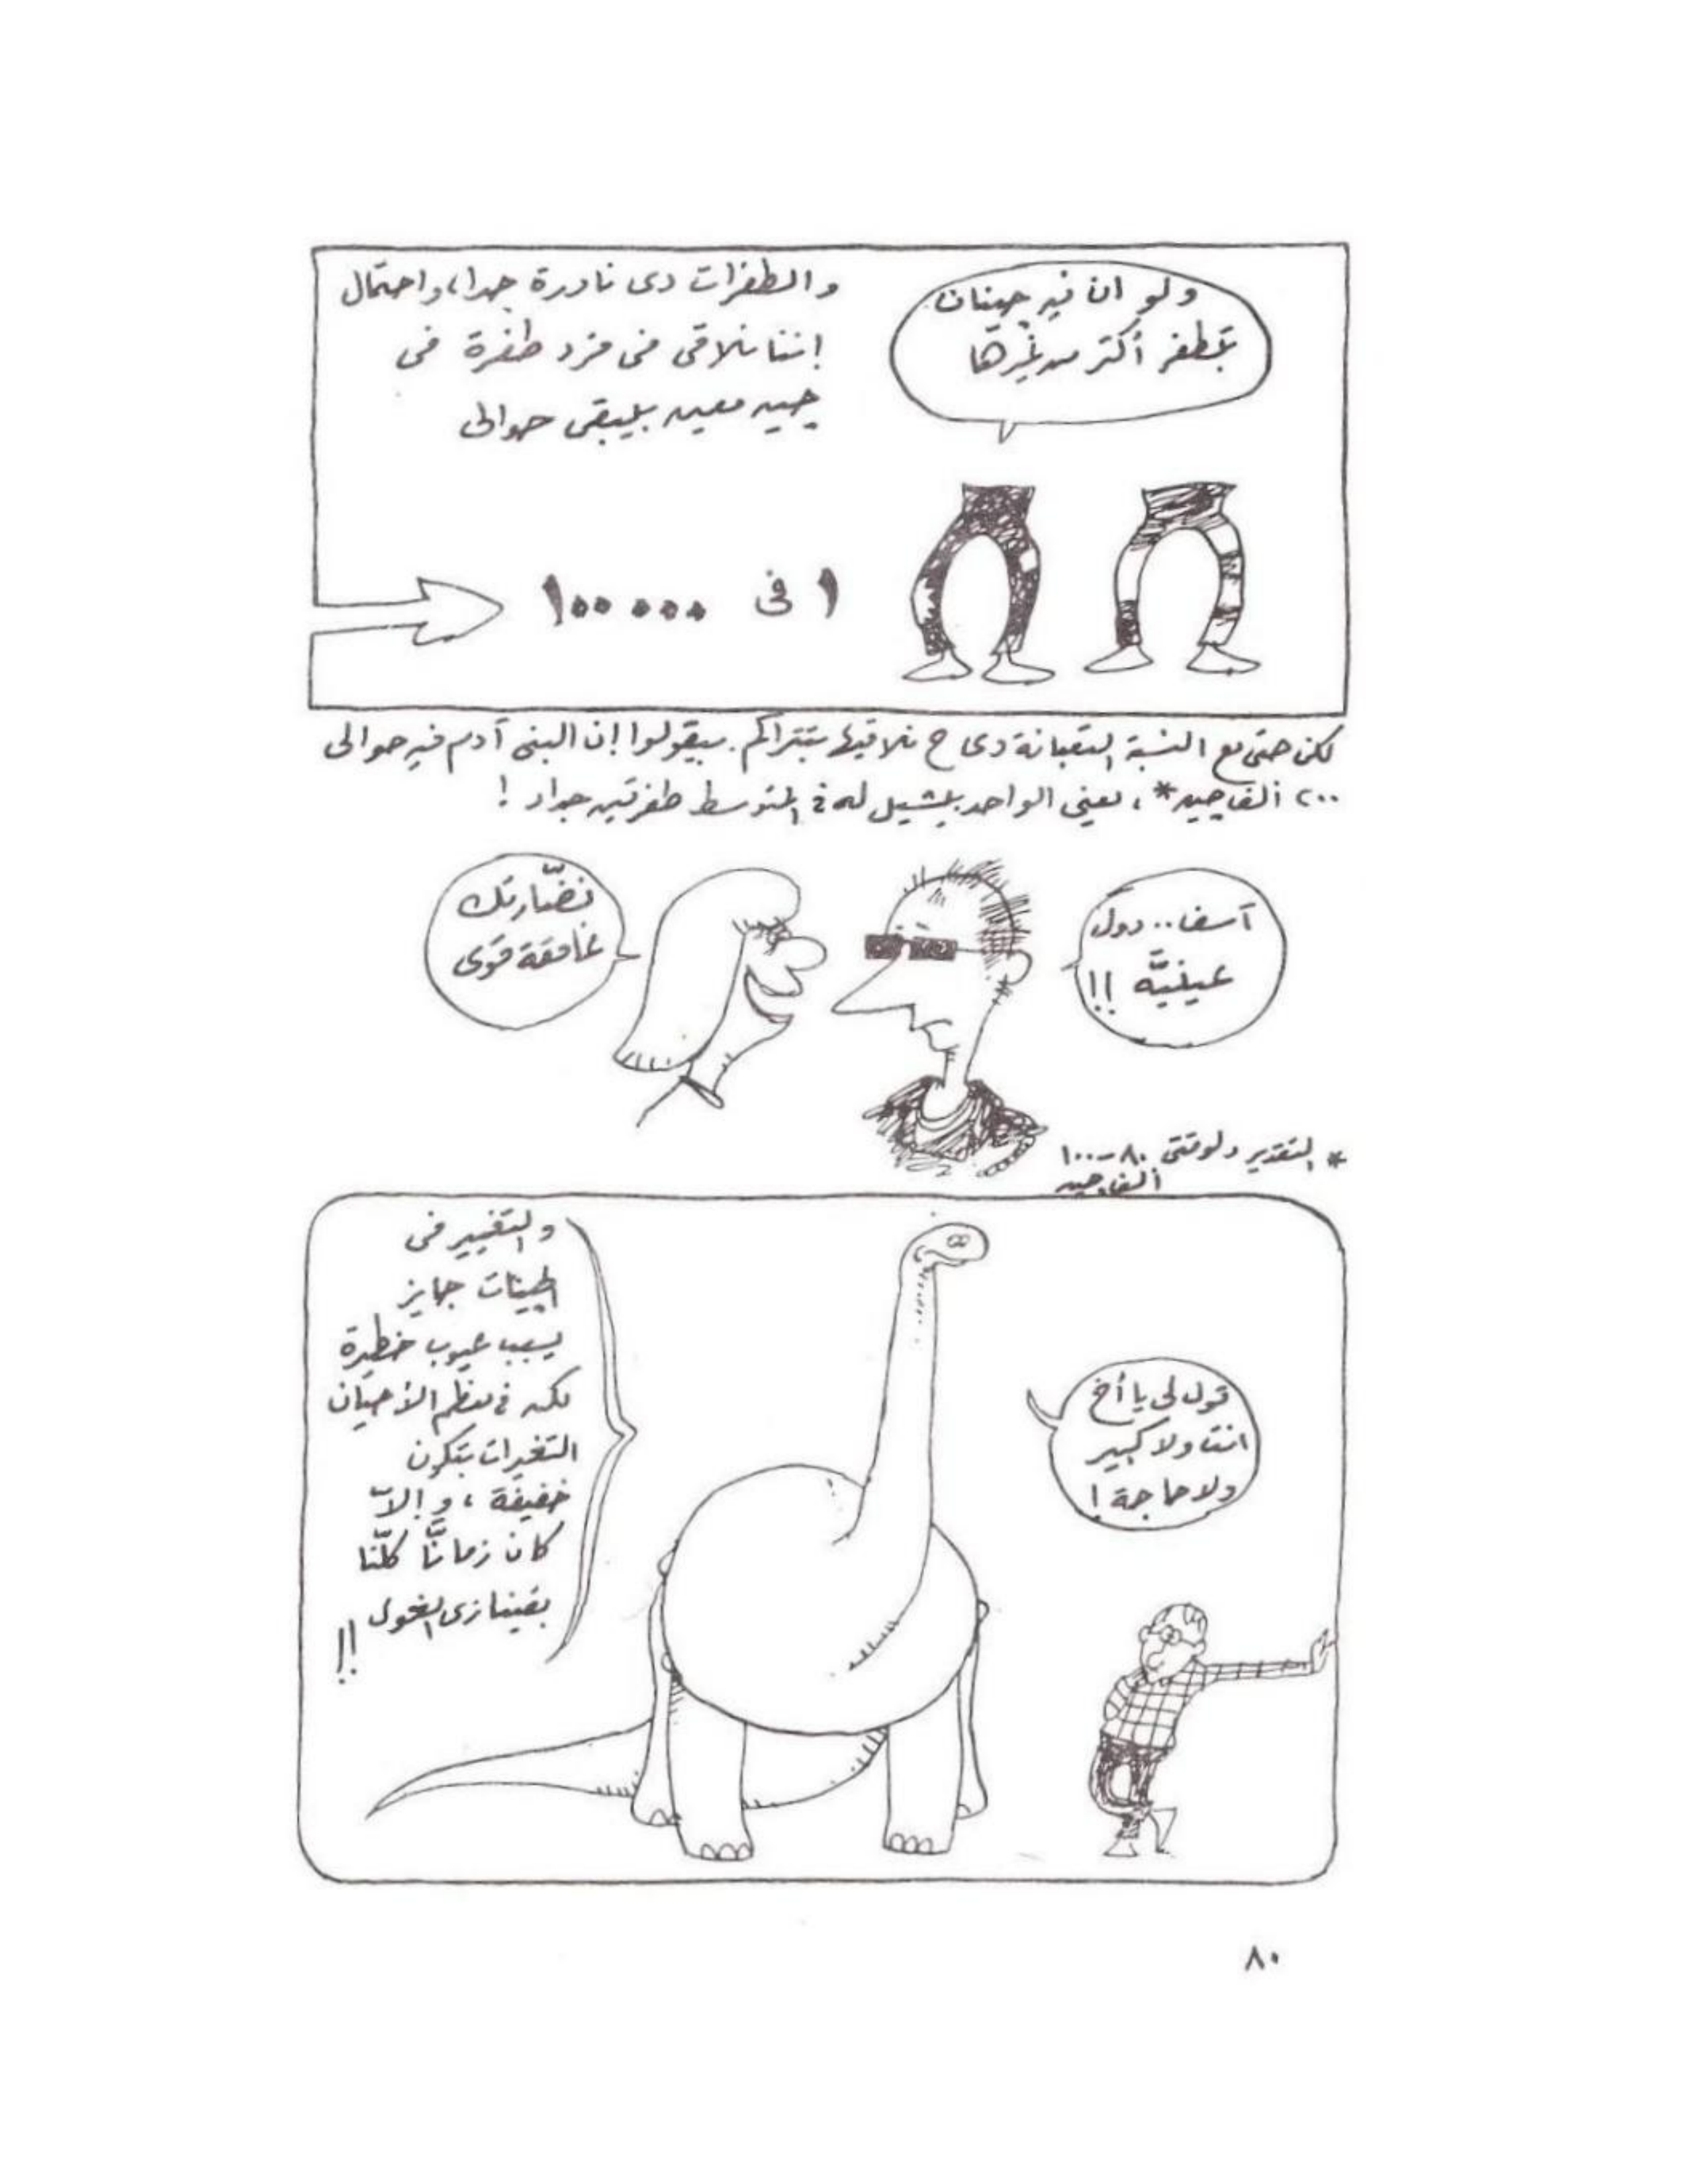 ولو ان فيه جينات
بتطفر أكتر من غيرها
والطفرات دى نادرة جدا، واحتمال
إننا نلاقى فى فرد طفرة فى
چين معين بيبقى حوالى
١ فى ١٠٠٠٠٠
لكن حتى مع النسبة التعبانة دى ح نلاقيها بتتراكم. بيقولوا إن البنى آدم فيه حوالى
٢٠٠ ألف چين*، يعنى الواحد بيشيل له فى المتوسط طفرتين جداد!
نضّارتك
غامقة قوى
آسف.. دول
عينيَّه !!
* التقدير دلوقتى ٨٠-١٠٠
ألف چين
والتغيير فى
الچينات جايز
يسبب عيوب خطيرة
لكن فى معظم الأحيان
التغيرات بتكون
خفيفة، وإلاّ
كان زمانَّا كلّنا
بقينا زى الغول
!!
قول لى يا أخ
انت ولا كبير
ولا حاجة!
٨٠